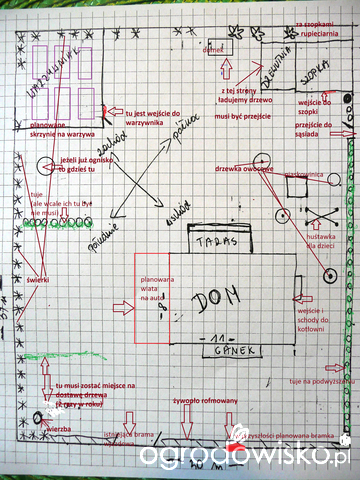 za szopkami
rupieciarnia
domek
WARZYWNIK
DREWUTNIA
SZOPKA
z tej strony
ładujemy drzewo
wejście do
szopki
tu jest wejście do
warzywnika
musi być przejście
planowane
skrzynie na warzywa
przejście do
sąsiada
zachód
północ
jeżeli już ognisko
to gdzieś tu
drzewka owocowe
piaskownica
tuje
(ale wcale ich tu być
nie musi)
południe
wschód
huśtawka
dla dzieci
TARAS
świerki
planowana
wiata
na auto
DOM
8
wejście i
schody do
kotłowni
11
GANEK
tuje na podwyższeniu
tu musi zostać miejsce na
dostawę drzewa
(2 razy w roku)
żywopło rofmowany
wierzba
istniejąca brama
wjazdowa
w przyszłości planowana bramka
ogrodowisko.pl